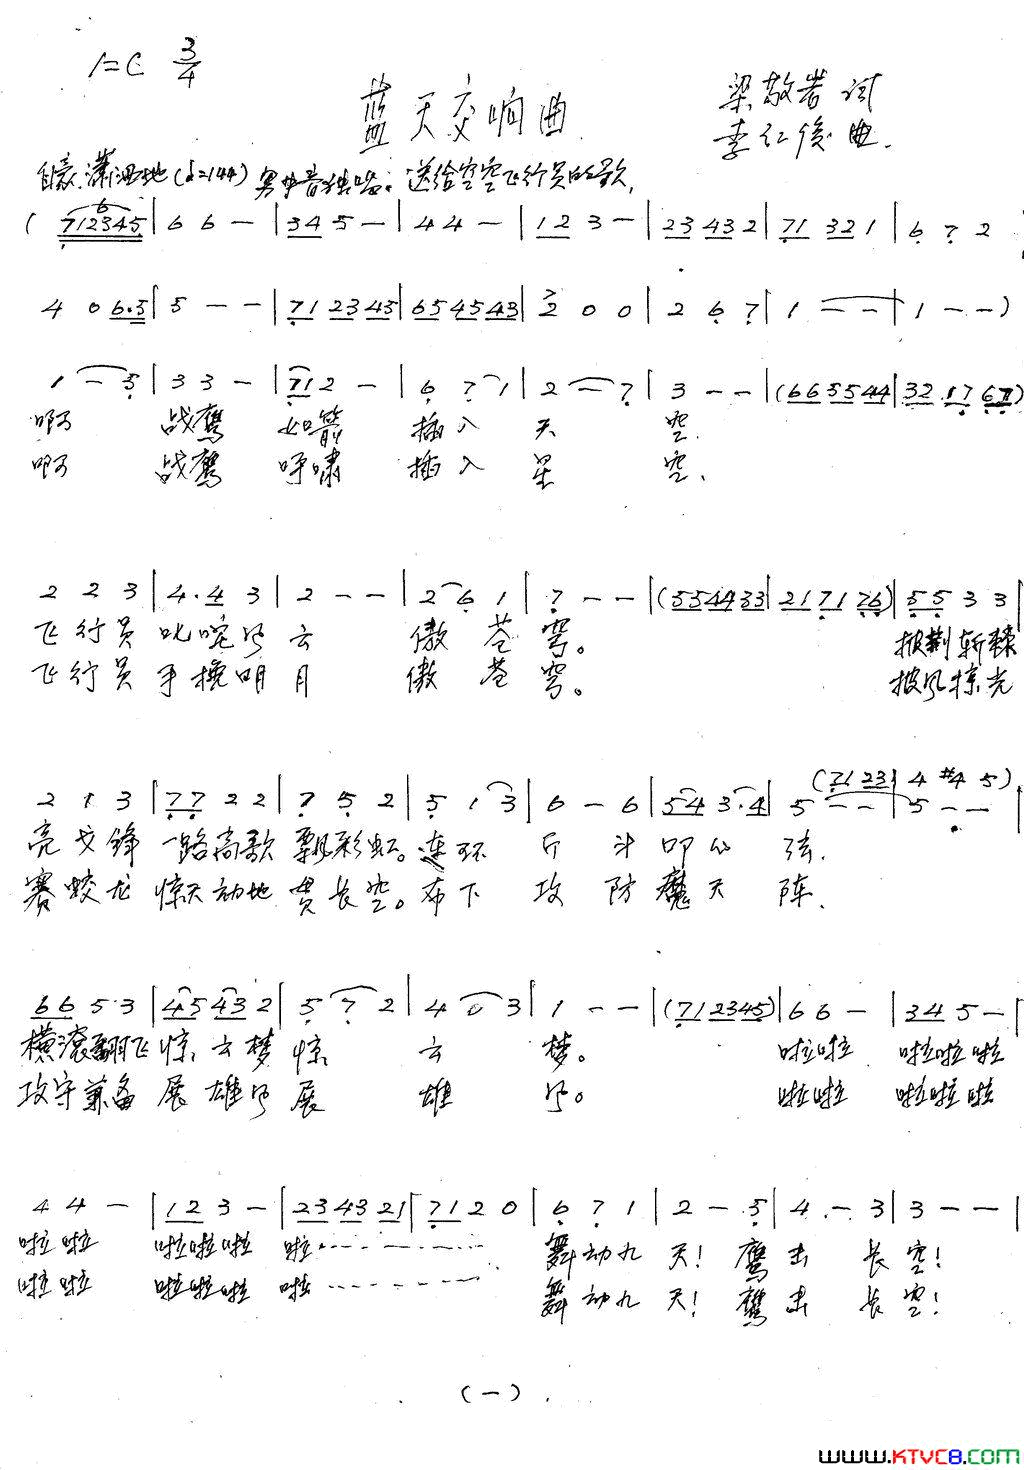 1=C 3/4
蓝天交响曲
梁敬岩 词
李仁俊 曲.
自豪.潇洒地(♩=144) 男中音独唱: 送给空军飞行员的歌,
( 712345 | 6 6 - | 34 5 - | 4 4 - | 12 3 - | 23 43 2 | 71 32 1 | 6 7 2
4 0 6.5 | 5 - - | 71 23 45 | 65 45 43 | 2 0 0 | 2 6 7 | 1 - - | 1 - - )
1 - 5 | 3 3 - | 71 2 - | 6 7 1 | 2 - 7 | 3 - - | (66 55 44 | 32 17 67)
啊 战鹰 如箭 插入 天 空.
啊 战鹰 呼啸 插入 星 空.
2 2 3 | 4.4 3 | 2 - - | 2 6 1 | 7 - - | (55 44 33 | 21 71 76) | 55 3 3 |
飞行员 叱咤风云 傲苍穹。 披荆斩棘
飞行员 手挽明月 傲苍穹。 披风掠光
(71 23 | 4 #4 5)
2 1 3 | 77 2 2 | 7 5 2 | 5 1 3 | 6 - 6 | 54 3.4 | 5 - - | 5 - - |
亮戈锋 一路高歌 飘彩虹。连环 斤 斗 叩心 弦.
赛蛟龙 惊天动地 贯长空。布下 攻 防 魔天 阵.
66 5 3 | 45 43 2 | 5 7 2 | 4 0 3 | 1 - - | (71 23 45) | 6 6 - | 34 5 - |
横滚翻飞 惊云梦 惊 云 梦。 啦啦 啦啦啦
攻守兼备 展雄风 展 雄 风。 啦啦 啦啦啦
4 4 - | 12 3 - | 23 43 21 | 71 2 0 | 6 7 1 | 2 - 5 | 4 - 3 | 3 - - |
啦啦 啦啦啦 啦………… 舞动九 天! 鹰击 长空!
啦啦 啦啦啦 啦………… 舞动九 天! 鹰击 长空!
(一)
www.KTVC8.COM